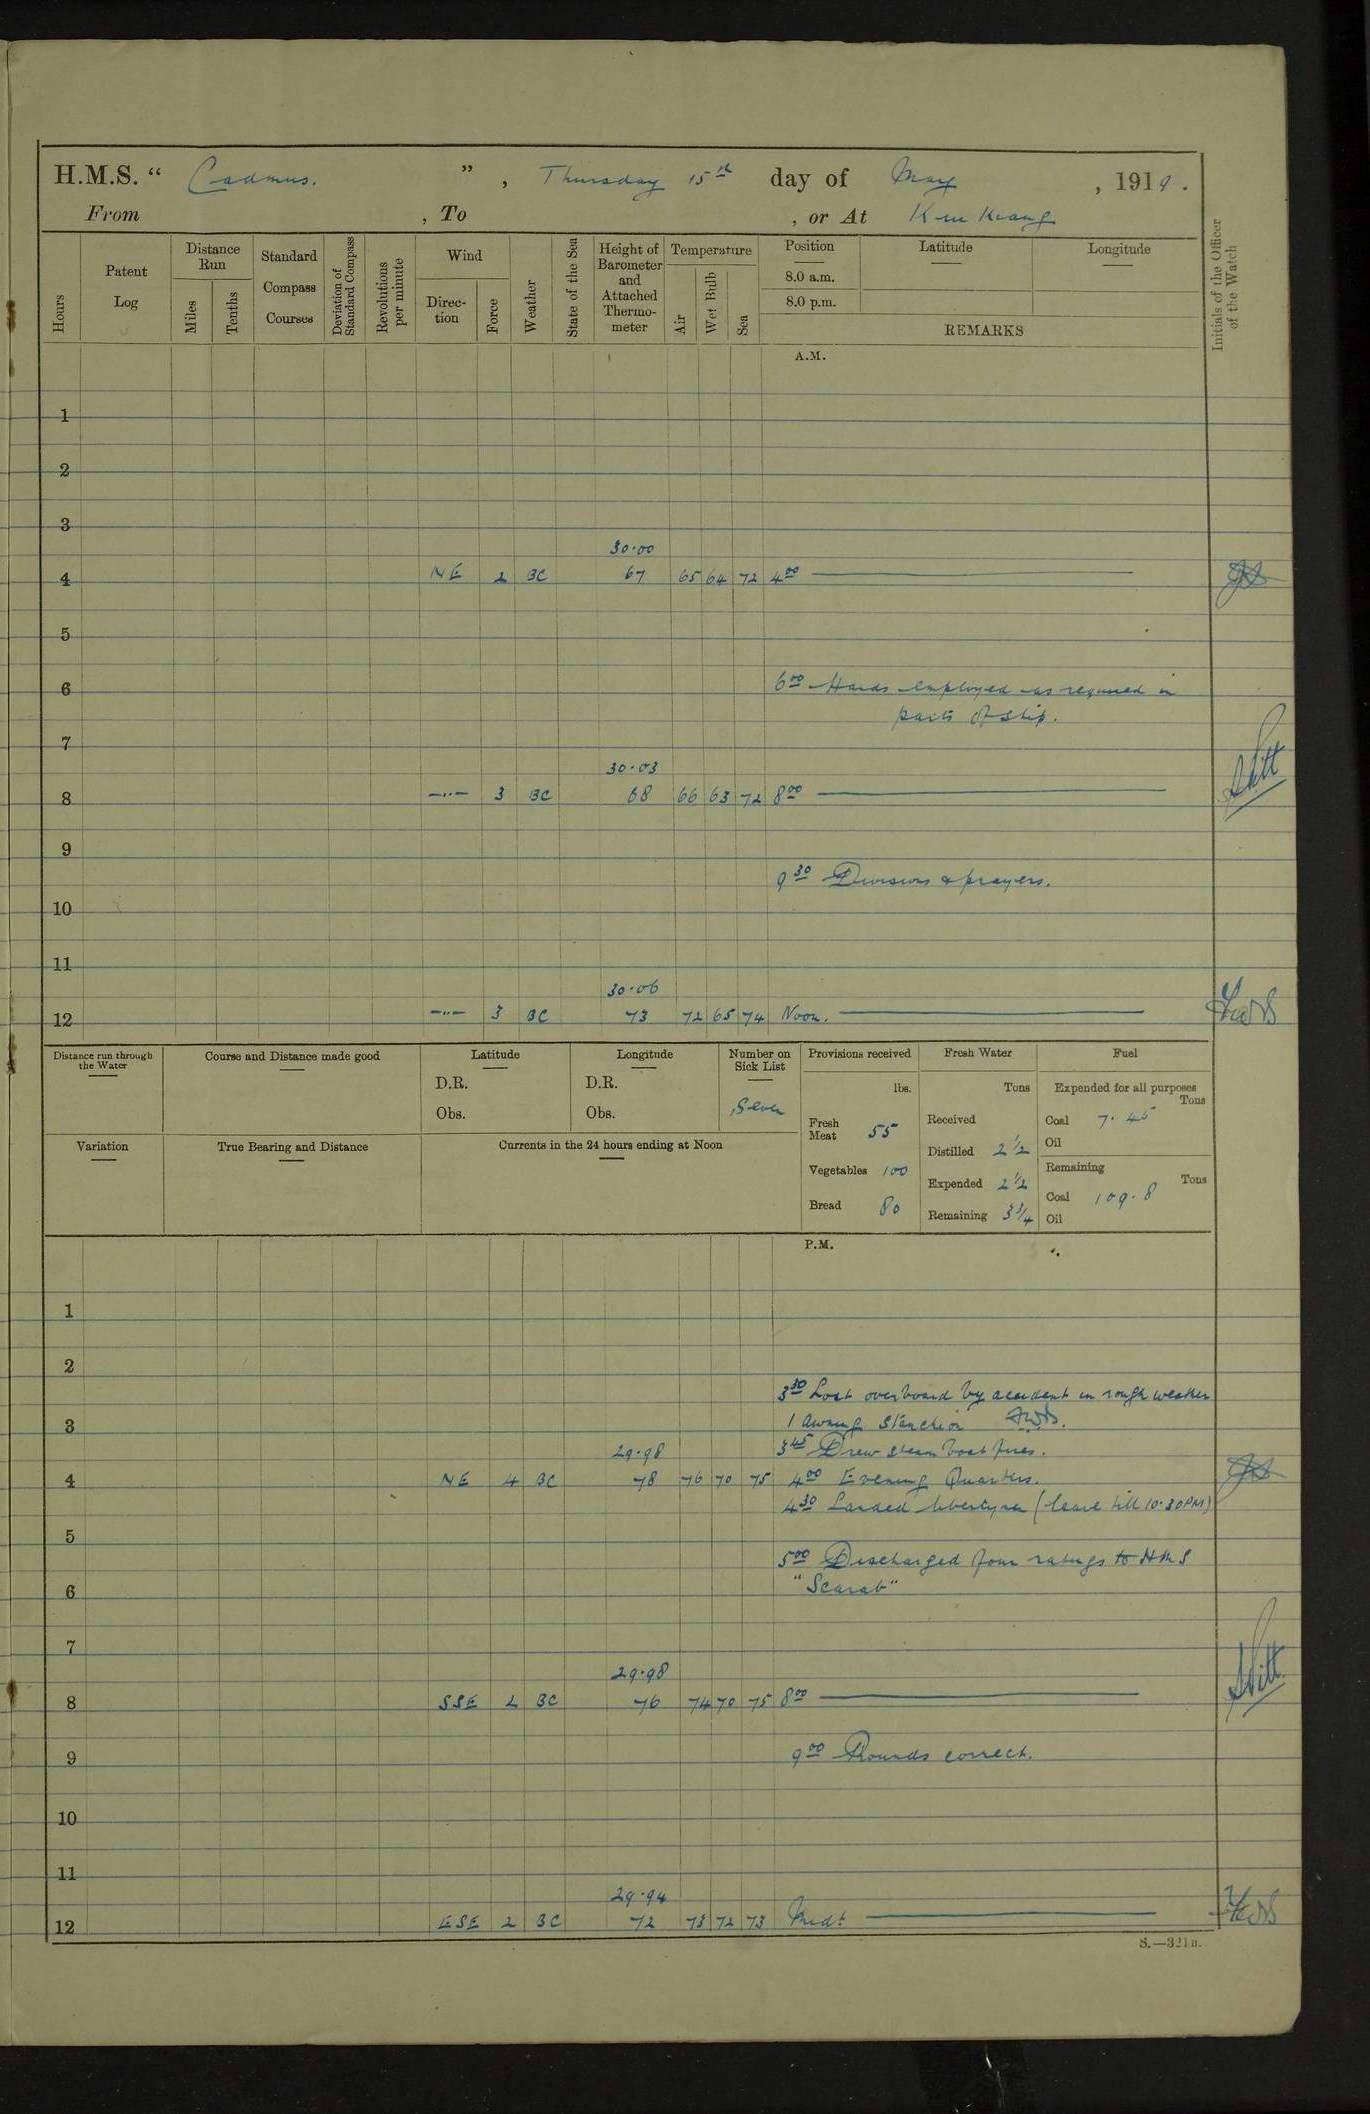 H.M.S. “ Cadmus. ” , Thursday 15th day of May , 1919 .
From , To , or At Kiu Kiang
Hours
Patent Log
Distance Run
Miles
Tenths
Standard Compass Courses
Deviation of Standard Compass
Revolutions per minute
Wind
Direc- tion
Force
Weather
State of the Sea
Height of Barometer and Attached Thermo- meter
Temperature
Air
Wet Bulb
Sea
Position
8.0 a.m.
8.0 p.m.
Latitude
Longitude
REMARKS
Initials of the Officer of the Watch
A.M.
1
2
3
30.00
4 NE 2 BC 67 65 64 72 4 00
5
6 6 00 Hands employed as required in
parts of ship.
7
30.03
8 —"— 3 BC 68 66 63 72 8 00
9
9 30 Divisions & prayers.
10
11
30.06
12 —"— 3 BC 73 72 65 74 Noon.
Distance run through the Water
Course and Distance made good
Latitude
D.R.
Obs.
Longitude
D.R.
Obs.
Number on Sick List
Seven
Provisions received
lbs.
Fresh Meat 55
Vegetables 100
Bread 80
Fresh Water
Tons
Received
Distilled 2 1/2
Expended 2 1/2
Remaining 3 3/4
Fuel
Expended for all purposes
Tons
Coal 7.45
Oil
Remaining
Tons
Coal 109.8
Oil
Variation
True Bearing and Distance
Currents in the 24 hours ending at Noon
P.M.
1
2
3 30 Lost overboard by accident in rough weather
3 1 awning stanchion
29.98 3 45 Drew steam boat fires.
4 NE 4 BC 78 76 70 75 4 00 Evening Quarters.
4 30 Landed libertymen (leave till 10.30 PM)
5
5 00 Discharged four ratings to HMS
6 "Scarab"
7
29.98
8 SSE 2 BC 76 74 70 75 8 00
9 9 00 Rounds correct.
10
11
29.94
12 ESE 2 BC 72 73 72 73 Midt
S.—321B.